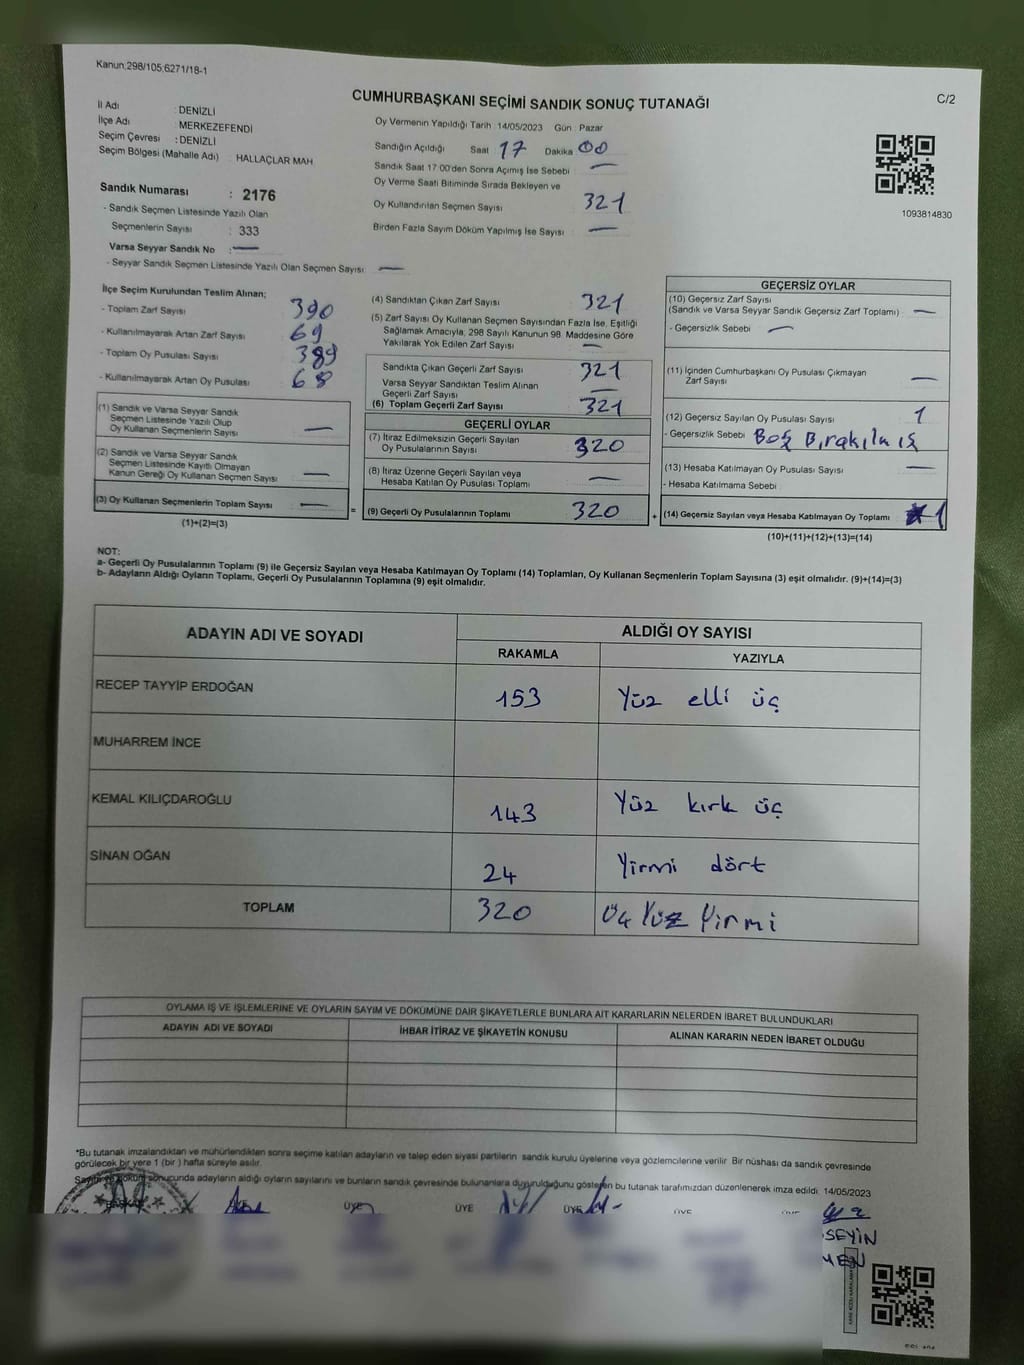 Kanun;298/105,6271/18-1
C/2
CUMHURBAŞKANI SEÇİMİ SANDIK SONUÇ TUTANAĞI
İl Adı : DENİZLİ
İlçe Adı : MERKEZEFENDİ
Seçim Çevresi : DENİZLİ
Seçim Bölgesi (Mahalle Adı) : HALLAÇLAR MAH
Sandık Numarası : 2176
- Sandık Seçmen Listesinde Yazılı Olan
Seçmenlerin Sayısı : 333
Varsa Seyyar Sandık No : —
- Seyyar Sandık Seçmen Listesinde Yazılı Olan Seçmen Sayısı: —
Oy Vermenin Yapıldığı Tarih :14/05/2023 Gün : Pazar
Sandığın Açıldığı Saat 17 Dakika 00
Sandık Saat 17:00'den Sonra Açımış İse Sebebi : —
Oy Verme Saati Bitiminde Sırada Bekleyen ve
Oy Kullandırılan Seçmen Sayısı 321
Birden Fazla Sayım Döküm Yapılmış İse Sayısı : —
1093814830
İlçe Seçim Kurulundan Teslim Alınan;
- Toplam Zarf Sayısı 390
- Kullanılmayarak Artan Zarf Sayısı 69
- Toplam Oy Pusulası Sayısı 389
- Kullanılmayarak Artan Oy Pusulası 68
(1) Sandık ve Varsa Seyyar Sandık
Seçmen Listesinde Yazılı Olup
Oy Kullanan Seçmenlerin Sayısı —
(2) Sandık ve Varsa Seyyar Sandık
Seçmen Listesinde Kayıtlı Olmayan
Kanun Gereği Oy Kullanan Seçmen Sayısı —
(3) Oy Kullanan Seçmenlerin Toplam Sayısı —
(1)+(2)=(3)
=
(4) Sandıktan Çıkan Zarf Sayısı 321
(5) Zarf Sayısı Oy Kullanan Seçmen Sayısından Fazla İse, Eşitliği
Sağlamak Amacıyla, 298 Sayılı Kanunun 98. Maddesine Göre
Yakılarak Yok Edilen Zarf Sayısı —
Sandıkta Çıkan Geçerli Zarf Sayısı 321
Varsa Seyyar Sandıktan Teslim Alınan
Geçerli Zarf Sayısı —
(6) Toplam Geçerli Zarf Sayısı 321
GEÇERLİ OYLAR
(7) İtiraz Edilmeksizin Geçerli Sayılan
Oy Pusulalarının Sayısı 320
(8) İtiraz Üzerine Geçerli Sayılan veya
Hesaba Katılan Oy Pusulası Toplamı —
(9) Geçerli Oy Pusulalarının Toplamı 320
+
GEÇERSİZ OYLAR
(10) Geçersiz Zarf Sayısı
(Sandık ve Varsa Seyyar Sandık Geçersiz Zarf Toplamı) —
- Geçersizlik Sebebi : —
(11) İçinden Cumhurbaşkanı Oy Pusulası Çıkmayan
Zarf Sayısı —
(12) Geçersiz Sayılan Oy Pusulası Sayısı 1
- Geçersizlik Sebebi Boş Bırakılmış
(13) Hesaba Katılmayan Oy Pusulası Sayısı —
- Hesaba Katılmama Sebebi :
(14) Geçersiz Sayılan veya Hesaba Katılmayan Oy Toplamı 1
(10)+(11)+(12)+(13)=(14)
NOT:
a- Geçerli Oy Pusulalarının Toplamı (9) ile Geçersiz Sayılan veya Hesaba Katılmayan Oy Toplamı (14) Toplamları, Oy Kullanan Seçmenlerin Toplam Sayısına (3) eşit olmalıdır. (9)+(14)=(3)
b- Adayların Aldığı Oyların Toplamı, Geçerli Oy Pusulalarının Toplamına (9) eşit olmalıdır.
ADAYIN ADI VE SOYADI ALDIĞI OY SAYISI
RAKAMLA YAZIYLA
RECEP TAYYİP ERDOĞAN 153 Yüz elli üç
MUHARREM İNCE
KEMAL KILIÇDAROĞLU 143 Yüz kırk üç
SİNAN OĞAN 24 Yirmi dört
TOPLAM 320 Üç Yüz Yirmi
OYLAMA İŞ VE İŞLEMLERİNE VE OYLARIN SAYIM VE DÖKÜMÜNE DAİR ŞİKAYETLERLE BUNLARA AİT KARARLARIN NELERDEN İBARET BULUNDUKLARI
ADAYIN ADI VE SOYADI İHBAR İTİRAZ VE ŞİKAYETİN KONUSU ALINAN KARARIN NEDEN İBARET OLDUĞU
*Bu tutanak imzalandıktan ve mühürlendikten sonra seçime katılan adayların ve talep eden siyasi partilerin sandık kurulu üyelerine veya gözlemcilerine verilir. Bir nüshası da sandık çevresinde
görülecek bir yere 1 (bir ) hafta süreyle asılır.
Sayım ve döküm sonucunda adayların aldığı oyların sayılarını ve bunların sandık çevresinde bulunanlara duyurulduğunu gösteren bu tutanak tarafımızdan düzenlenerek imza edildi. 14/05/2023
ÜYE ÜYE ÜYE ÜYE
SEYİN
MEN